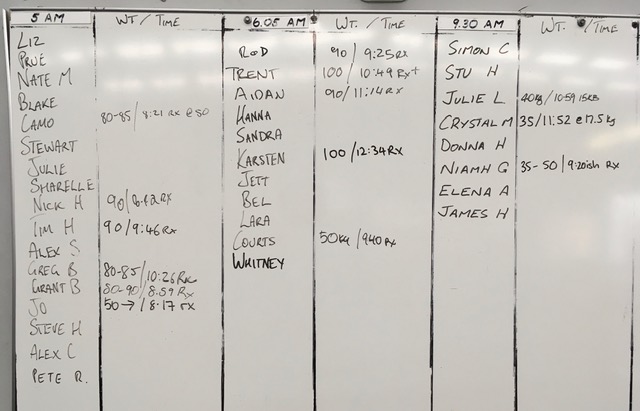 5 AM WT/TIME
LIZ
PRUE
NATE M
BLAKE
CAMO 80-85/8:21 RX @80
STEWART
JULIE
SHARELLE
NICK H 90/ RX
TIM H 90/9:46RX
ALEX S
GREG B 80-85/10:26 RX
GRANT B 80-90/8.59 RX
JO 50→/8.17 RX
STEVE H
ALEX C
PETE R.
6.05 AM WT./TIME
ROD 90/9:25RX
TRENT 100/10:49 RX+
AIDAN 90/11:14RX
HANNA
SANDRA
KARSTEN 100/12:34RX
JETT
BEL
LARA
COURTS 50kg/940 RX
WHITNEY
9.30 AM WT./TIME
SIMON C
STU H
JULIE L 40kg/10:59
CRYSTAL M 35/11:52 @17.5kg
DONNA H
NIAMH G 35-50/9:20ish RX
ELENA A
JAMES H